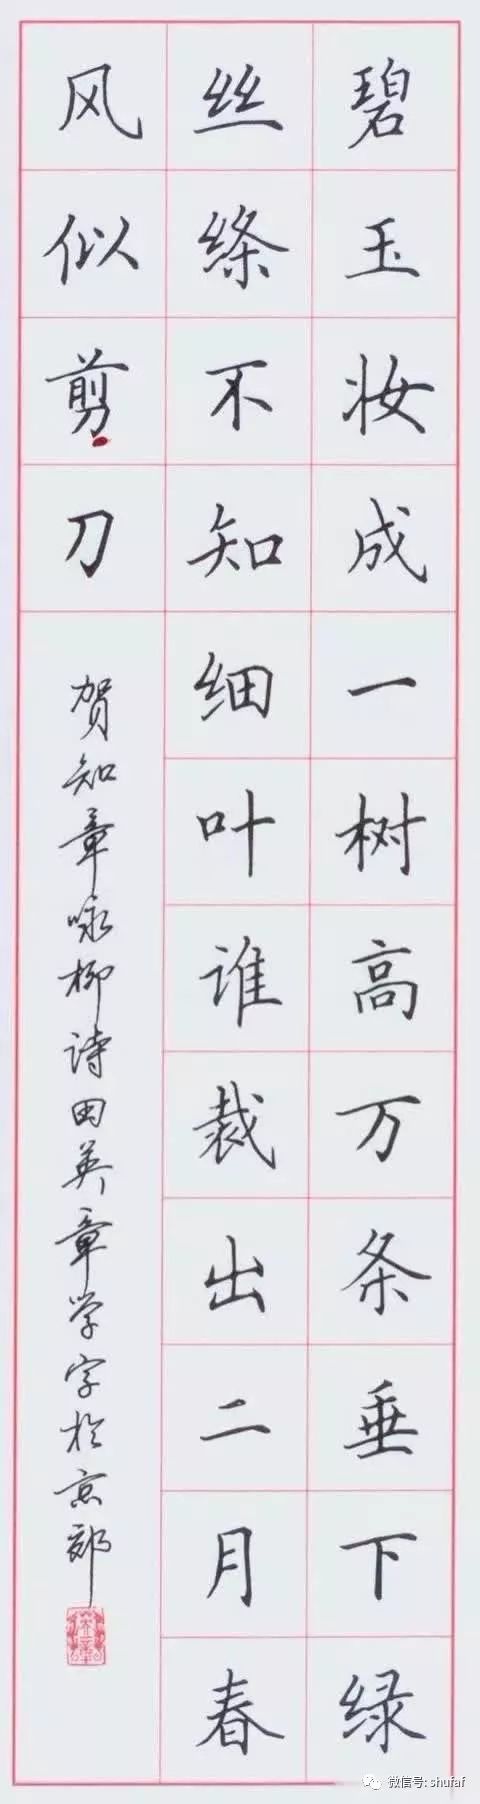 碧玉妆成一树高万条垂下绿
丝绦不知细叶谁裁出二月春
风似剪刀
贺知章咏柳诗田英章学字于京郊
微信号: shufaf